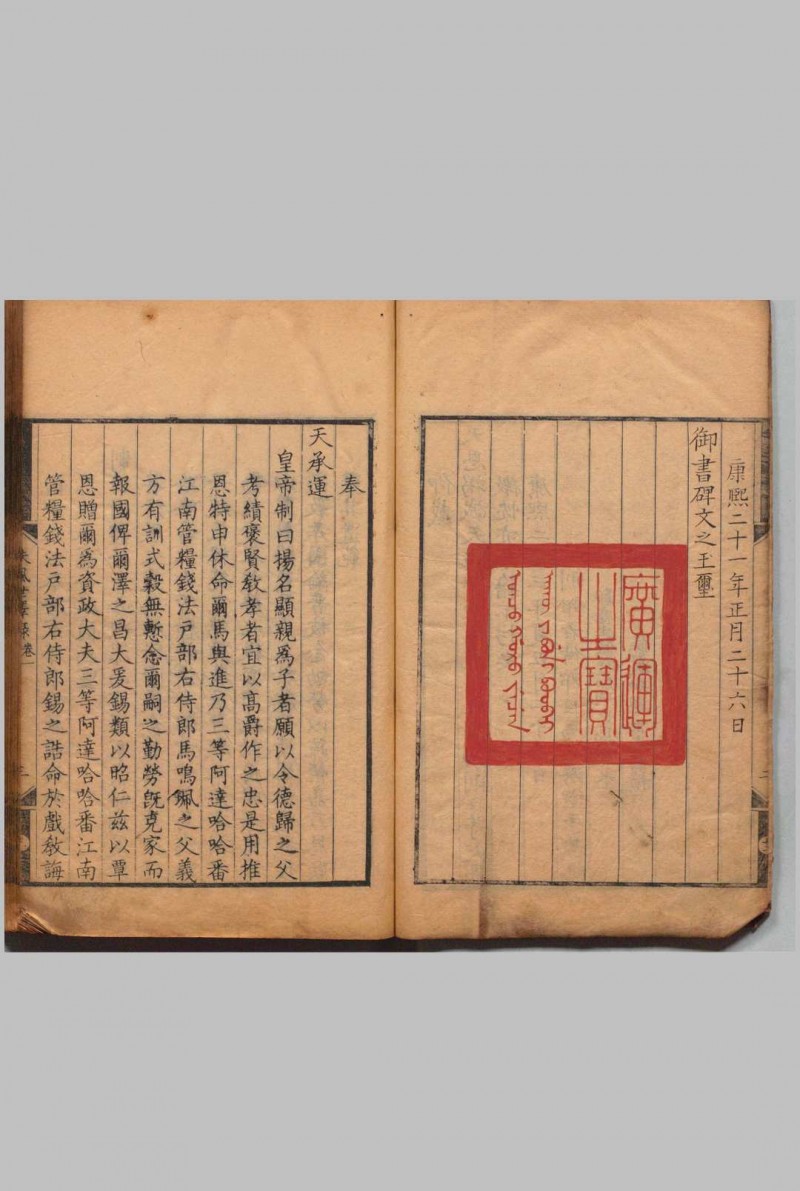 康熙二十一年正月二十六日
御書碑文之玉璽
廣運
之寶
奉
天承運
皇帝制曰揚名顯親爲子者願以令德歸之父
考績褒賢敎孝者宜以高爵作之忠是用推
恩特申休命爾馬與進乃三等阿達哈哈番
江南管糧錢法戸部右侍郎馬鳴珮之父義
方有訓式穀無慙念爾嗣之勤勞旣克家而
報國俾爾澤之昌大爰錫類以昭仁兹以覃
恩贈爾爲資政大夫三等阿達哈哈番江南
管糧錢法戸部右侍郎錫之誥命於戲敎誨